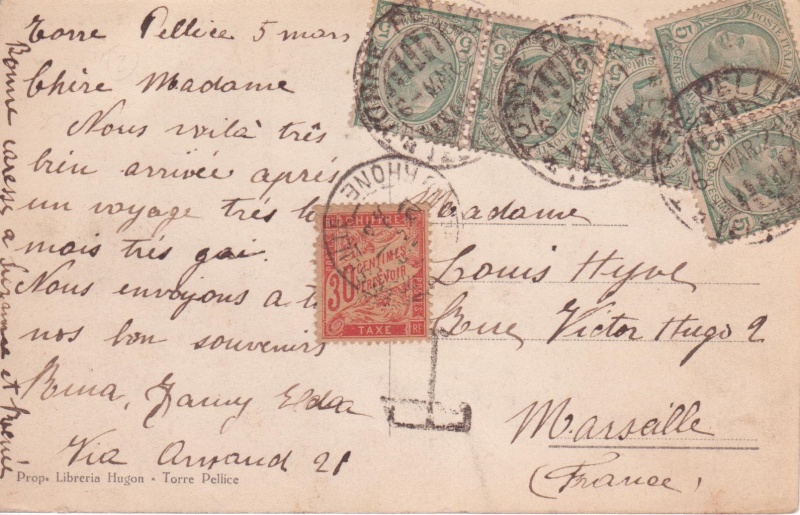 Torre Pellice 5 mars
Chère Madame
Nous voilà très
bien arrivée après
un voyage trés
mais trés gai.
Nous envoyons a
nos bon souvenirs
Fanny Elda
Via Arnaud 21
Bonne caresse a Suzanne et
Madame
Louis Hyve
Rue Victor Hugo 2
Marseille
(France)
Prop. Libreria Hugon - Torre Pellice
CHIFFRE
CENTIMES
PERCEVOIR
30
TAXE
RF
T
POSTE ITALIANE
5
RHONE
PELLICE
MAR